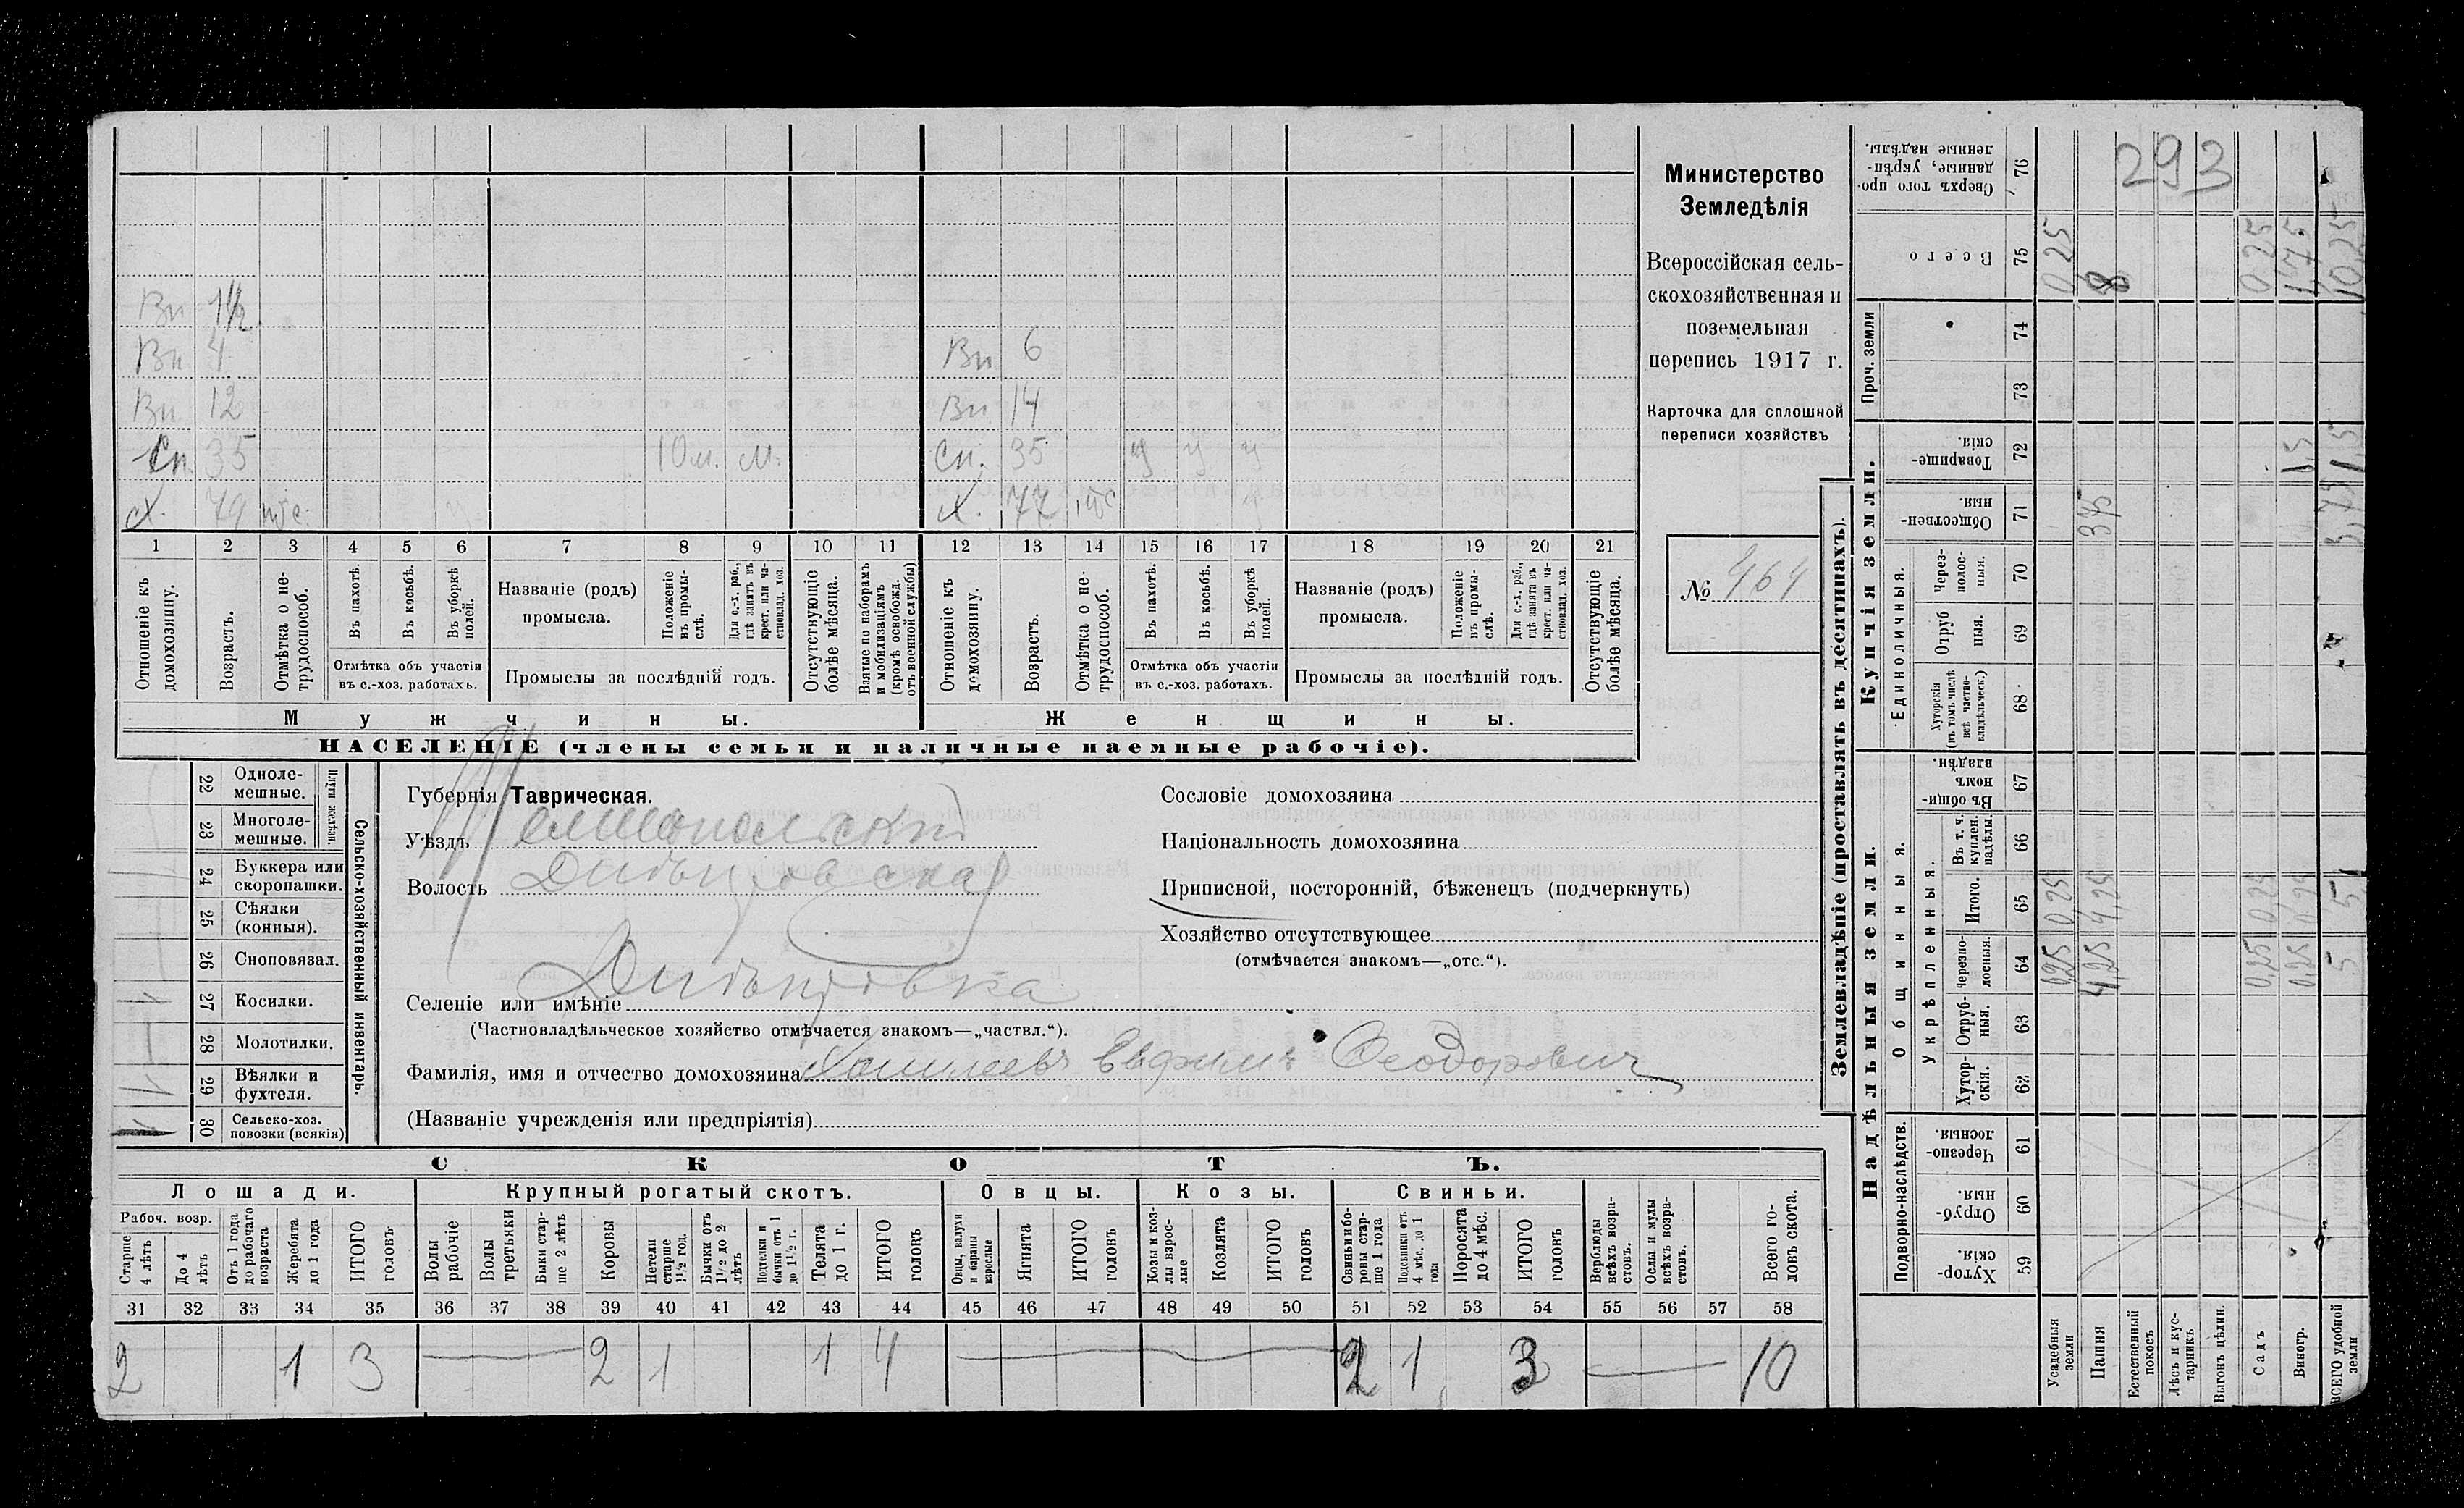 293
Министерство
Земледѣлія
Всероссійская сель-
скохозяйственная и
поземельная
перепись 1917 г.
Карточка для сплошной
переписи хозяйствъ
№ 464
Вн 1½
Вн 4 Вн 6
Вн. 12 Вн. 14
Сн 35 10 м. Сн. 35 у у у
х. 79 х. 77
1 2 3 4 5 6 7 8 9 10 11 12 13 14 15 16 17 18 19 20 21
Отношеніе къ домохозяину.
Возрастъ.
Отмѣтка о не-трудоспособ.
Въ пахотѣ.
Въ косьбѣ.
Въ уборкѣ полей.
Отмѣтка объ участіи
въ с.-хоз. работахъ.
Названіе (родъ)
промысла.
Положеніе въ промы-слѣ.
Для с.-х. раб., гдѣ занятъ въ крест. или ча-стновлад. хоз.
Промыслы за послѣдній годъ.
Отсутствующіе болѣе мѣсяца.
Взятые по наборамъ и мобилизаціямъ (кромѣ освобожд. отъ военной службы)
Отношеніе къ домохозяину.
Возрастъ.
Отмѣтка о не-трудоспособ.
Въ пахотѣ.
Въ косьбѣ.
Въ уборкѣ полей.
Отмѣтка объ участіи
въ с.-хоз. работахъ.
Названіе (родъ)
промысла.
Положеніе въ промы-слѣ.
Для с.-х. раб., гдѣ занята въ крест. или ча-стновлад. хоз.
Промыслы за послѣдній годъ.
Отсутствующіе болѣе мѣсяца.
Мужчины. Женщины.
НАСЕЛЕНІЕ (члены семьи и наличные наемные рабочіе).
Сельско-хозяйственный инвентарь.
Плуги желѣзн.
22 Одноле-мешные.
23 Многоле-мешные.
24 Буккера или скоропашки.
25 Сѣялки (конныя).
26 Сноповязал.
27 Косилки.
28 Молотилки.
29 Вѣялки и фухтеля.
30 Сельско-хоз. повозки (всякія)
Губернія Таврическая.
Уѣздъ Мелитопольскій
Волость
Селеніе или имѣніе
(Частновладѣльческое хозяйство отмѣчается знакомъ—„частвл.“).
Фамилія, имя и отчество домохозяина Евфимъ Феодоровичъ
(Названіе учрежденія или предпріятія)
Сословіе домохозяина
Національность домохозяина
Приписной, посторонній, бѣженецъ (подчеркнуть)
Хозяйство отсутствующее
(отмѣчается знакомъ—„отс.“).
СКОТЪ.
Лошади. Крупный рогатый скотъ. Овцы. Козы. Свиньи.
Рабоч. возр.
Старше 4 лѣтъ
До 4 лѣтъ
Отъ 1 года до рабочаго возраста
Жеребята до 1 года
ИТОГО головъ
Волы рабочіе
Волы третьяки
Быки стар-ше 2 лѣтъ
Коровы
Нетели старше 1½ год.
Бычки отъ 1½ до 2 лѣтъ
Подтелки и бычки отъ 1 до 1½ г.
Телята до 1 г.
ИТОГО головъ
Овцы, валухи и бараны взрослые
Ягнята
ИТОГО головъ
Козы и коз-лы взрос-лые
Козлята
ИТОГО головъ
Свиньи и бо-ровы стар-ше 1 года
Подсвинки отъ 4 мѣс. до 1 года
Поросята до 4 мѣс.
ИТОГО головъ
Верблюды всѣхъ возра-стовъ.
Ослы и мулы всѣхъ возра-стовъ.
Всего го-ловъ скота.
31 32 33 34 35 36 37 38 39 40 41 42 43 44 45 46 47 48 49 50 51 52 53 54 55 56 57 58
2 1 3 — 2 1 1 4 — 2 1 3 — 10
Землевладѣніе (проставлять въ десятинахъ).
Купчія земли.
Надѣльныя земли.
Сверхъ того про-данные, укрѣп-ленные надѣлы. 76
Всего 75 0 25 8 0,25 1,75 10,25
Проч. земли 74 73
Товарище-скія. 72 1,5 1,5
Обществен-ныя. 71 3,75 3,75
Единоличныя.
Через-полос-ныя. 70
Отруб ныя. 69
Хуторскія (въ томъ числѣ всѣ частно-владѣльческ.) 68
Общинныя.
Въ общи-номъ владѣн. 67
Укрѣпленныя.
Въ т. ч. куплен. надѣлы. 66
Итого. 65 0,25 4,25 0,25 0,25 5
черезпо-лосныя. 64 0,25 4,25 0,25 0,25 5
Отруб-ныя. 63
Хутор-скія. 62
Подворно-наслѣдств.
Черезпо-лосныя. 61
Отруб-ныя. 60
Хутор-скія. 59
Усадебныя земли
Пашня
Естественный покосъ
Лѣсъ и кус-тарникъ
Выгонъ цѣлин.
Садъ
Виногр.
ВСЕГО удобной земли